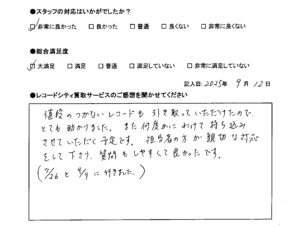 ●スタッフの対応はいかがでしたか？
☑非常に良かった □良かった □普通 □良くない □非常に良くない
●総合満足度
☑大満足 □満足 □普通 □満足していない □非常に満足していない
記入日: 2025年 9月 12日
●レコードシティ買取サービスのご感想を聞かせてください
値段のつかないレコードも引き取っていただけたので、
とても助かりました。また何度かにわけて持ち込み
させていただく予定です。担当者の方が親切な対応
をして下さり、質問もしやすくて良かったです。
(7/26 と 9/9 に行きました。)